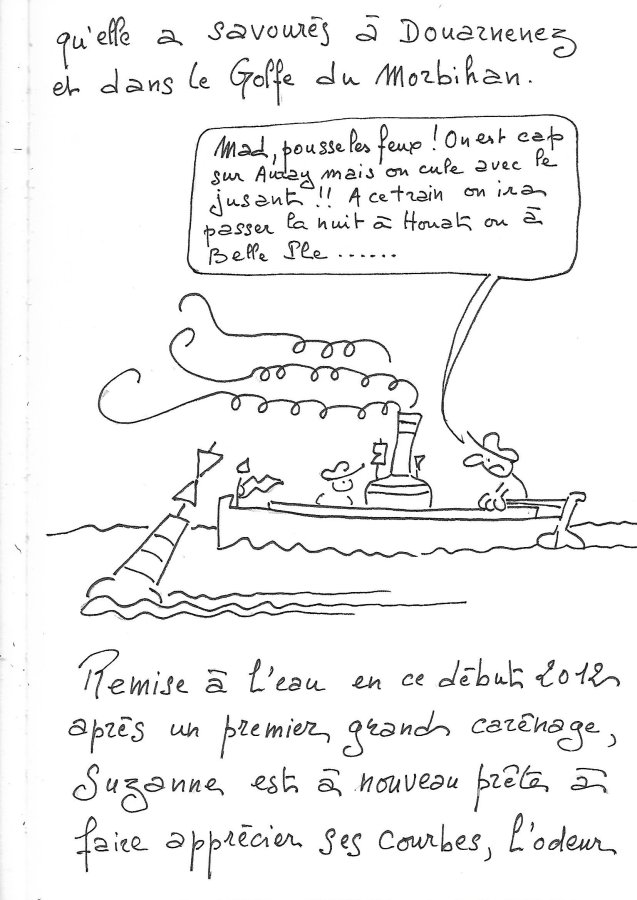 qu'elle a savourés à Douarnenez
et dans le Golfe du Morbihan.
Mad, pousse les feux ! On est cap
sur Auray mais on cule avec le
jusant !! A ce train on ira
passer la nuit à Houat ou à
Belle Ile ......
Remise à l'eau en ce début 2012
après un premier grand carénage,
Suzanne est à nouveau prête à
faire apprécier ses courbes, l'odeur